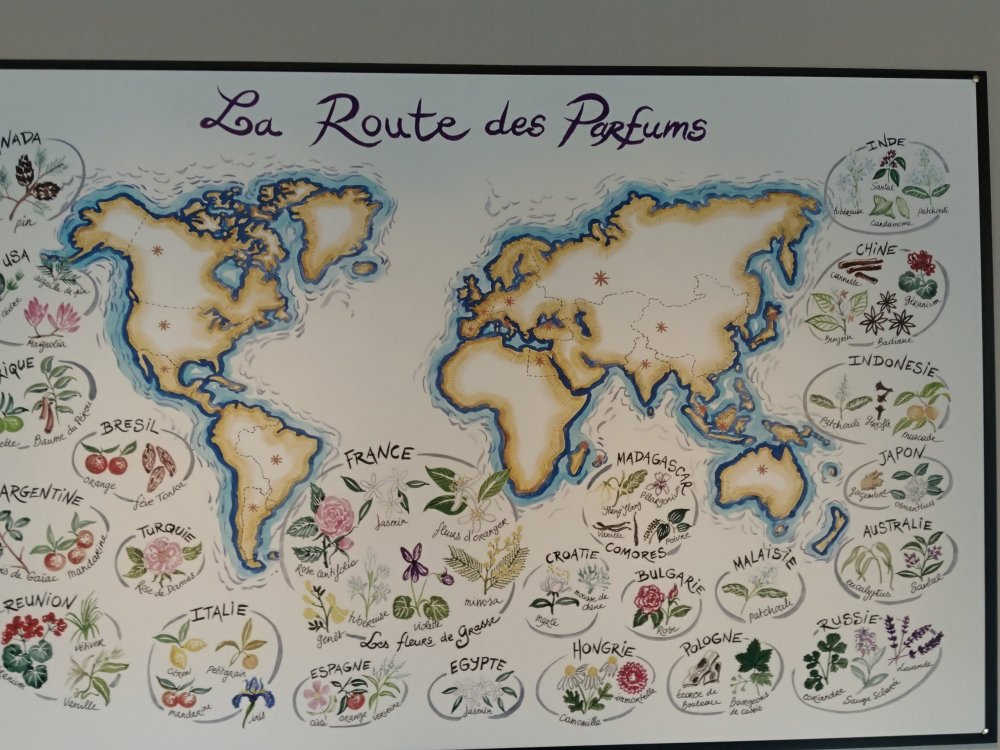 La Route des Parfums
NADA
pin
USA
cèdre
aiguille de pin
Magnolia
RIQUE
ette
Baume du Pérou
BRESIL
orange
fève Tonka
ARGENTINE
is de Gaïac
mandarine
TURQUIE
Rose de Damas
REUNION
Vétiver
ranium
Vanille
ITALIE
Citron
Petitgrain
mandarine
iris
FRANCE
Jasmin
fleurs d'oranger
Rose Centifolia
tubéreuse
violette
mimosa
genêt
Les fleurs de Grasse
ESPAGNE
Ciste
orange
verveine
EGYPTE
Jasmin
MADAGASCAR
Ylang Ylang
Pélargonium
Vanille
Poivre
COMORES
CROATIE
myrte
mousse de
chêne
BULGARIE
Rose
MALAISIE
patchouli
HONGRIE
Camomille
immortelle
POLOGNE
écorce de
Bouleau
Bourgeons
de cassis
RUSSIE
coriandre
Sauge Sclarée
Lavande
INDE
tubéreuse
Santal
cardamome
patchouli
CHINE
Cannelle
Géranium
Benjoin
Badiane
INDONESIE
Patchouli
Girofle
muscade
JAPON
gingembre
osmanthus
AUSTRALIE
eucalyptus
Santal